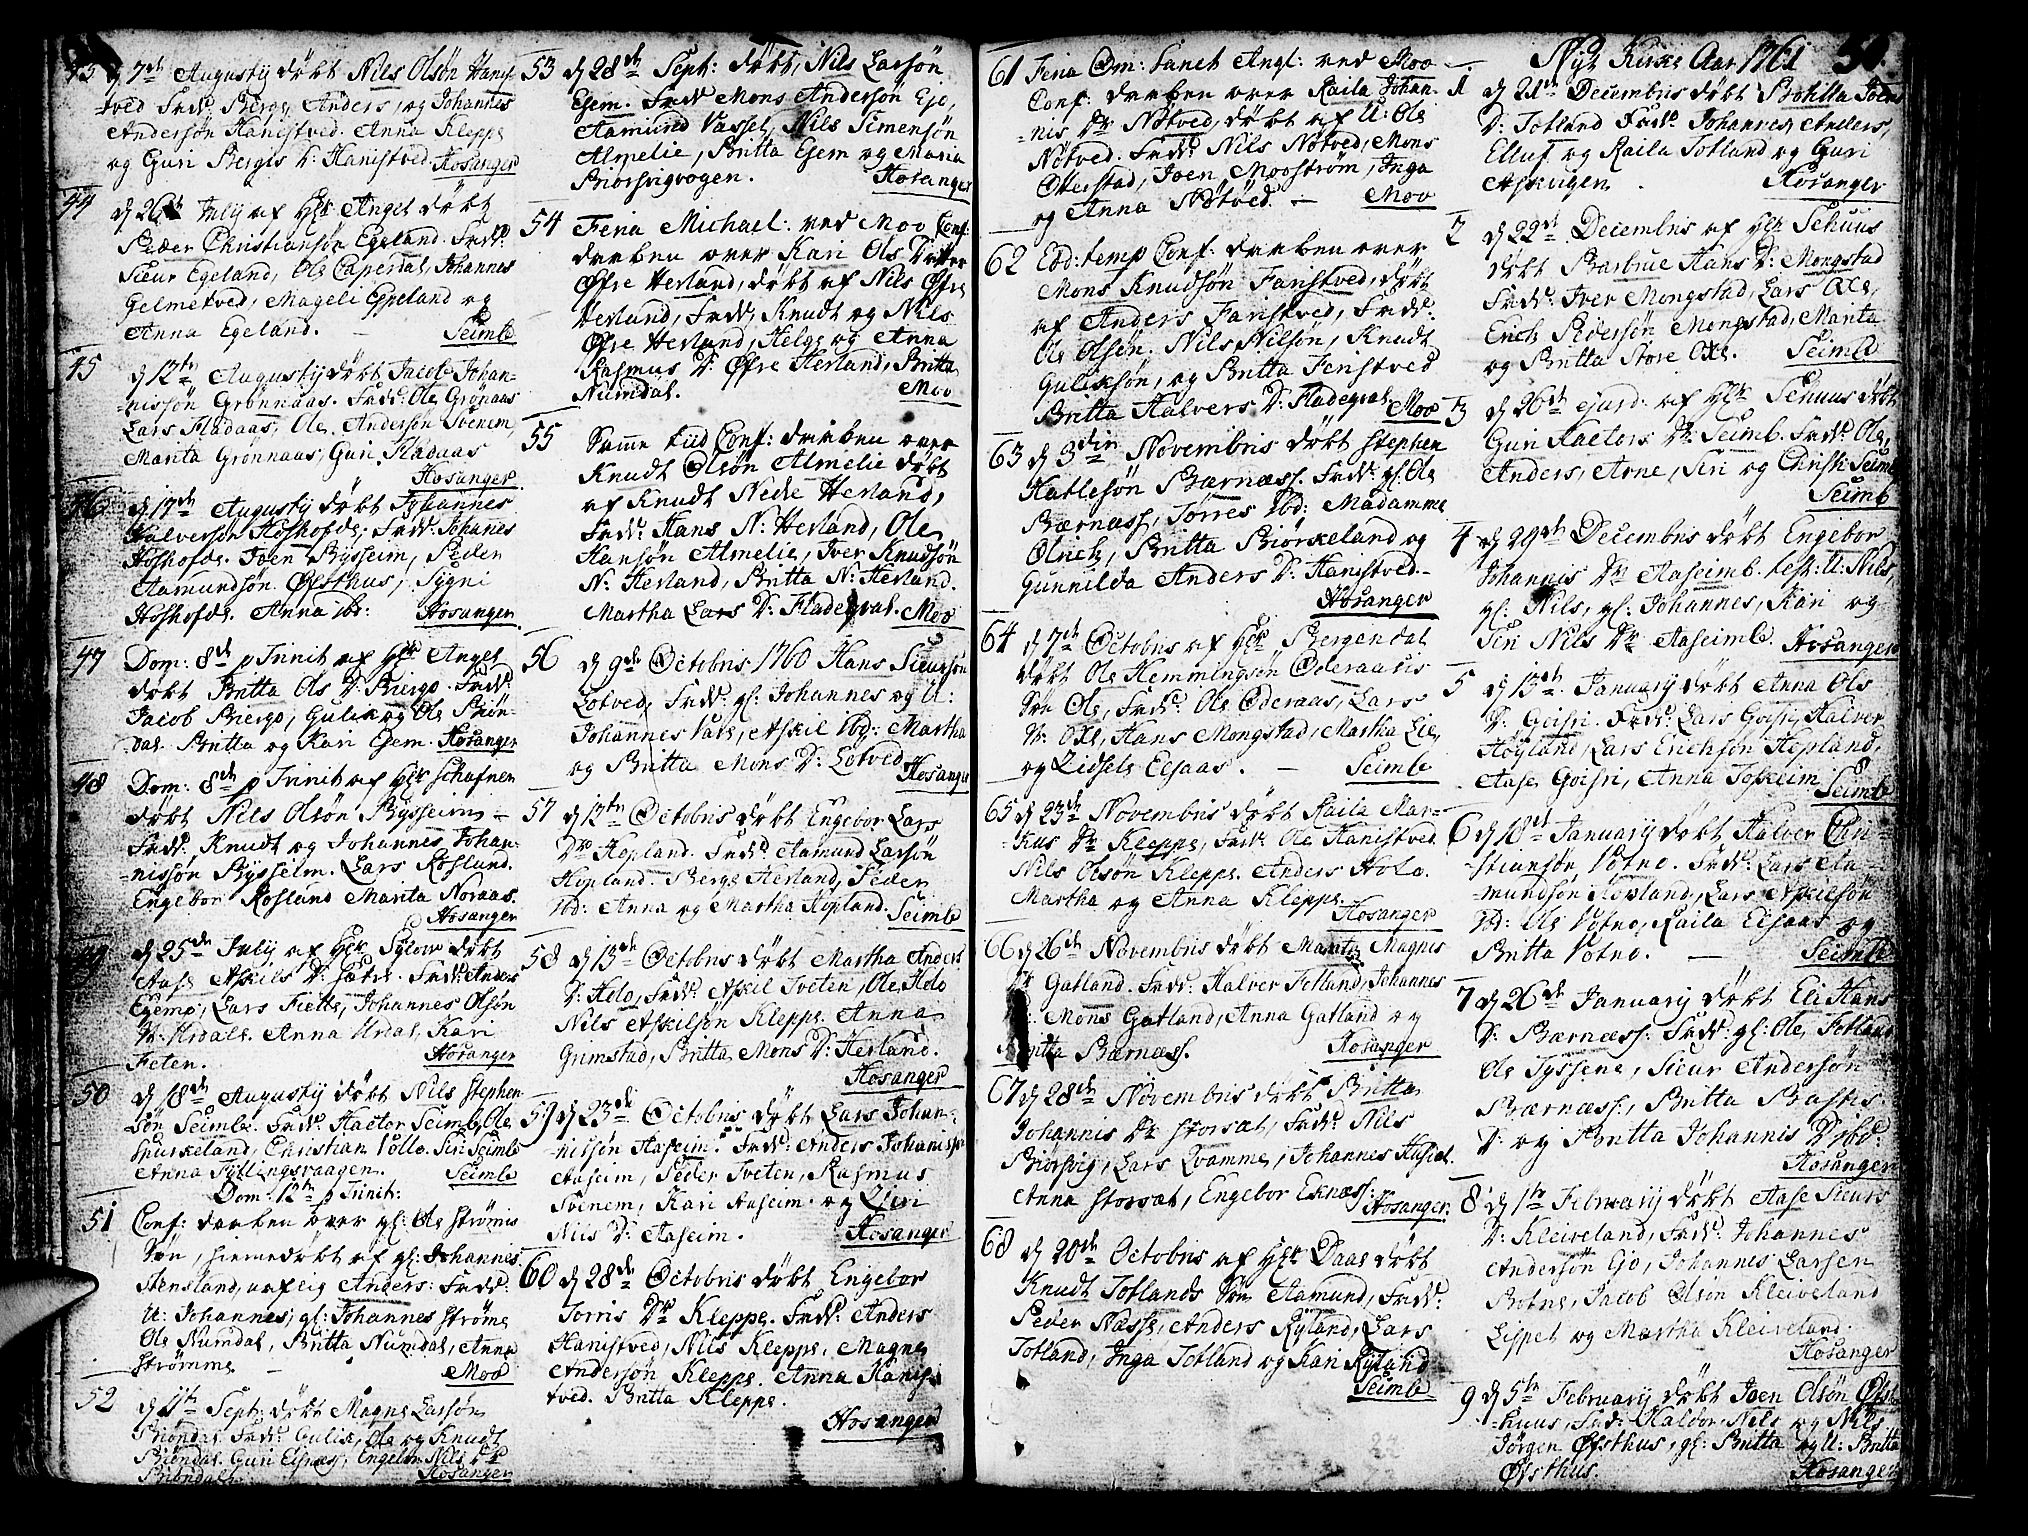 43 d 7de Augustij döbt Nils Olsön Hanis-
tved Fadd: Berge, Anders, og Johannes
Andersön Hanistved. Anna Kleppe
og Guri Bergis D: Hanistved. Hosanger
44 d 26de Julij af Hr: Angel döbt
Peder Christiansön Egeland. Fadd:
Sieur Egeland, Ole Caperdal, Johannes
Gelmetved, Mageli Egeland og
Anna Egeland. Seimbe
45 d 12te Augustij döbt Jacob Johan-
nissön Grönnaas. Fadd: Ole Grönaas
Lars Fladaas, Ole Andersön Soenem,
Marita Grönnaas, Guri Fladaas
Hosanger
46 d 17de Augustij döbt Johannes
Halversön Hoshofde, Fadd: Johanes
Hoshofde. Joen Bysseim, Peder
Aamundsön Öfsthus, Sygni
Hoshofde. Anna ibd: Hosanger
47 Dom: 8de p Trinit af Hr: Angel
döbt Britta Ols D: Biergo. Fadd:
Jacob Biergo, Gulik og Ole Biön-
dal. Britta og Kari Esem. Hosanger
48 Dom: 8de p Trinit af Hr: Schafner
döbt Nils Olsön Bysseim
Fadd: Knudt og Johannes Johan-
nissön Bysseim. Lars Rosland.
Engebor Rosland Marita Noraas.
Hosanger
49 d 25de Julij af Hr: Sylow döbt
Aase Askils D: Fadd: Anders
Egemo, Lars Fiette, Johannes Olsön
N: Urdale. Anna Urdal, Kari
Feten. Hosanger
50 d 18de Augustij döbt Nils Stephen
Sön Seimbe. Fadd: Hactor Seimb, Ole
Spurkeland, Christian Vollo. Siri Seimbe
Anna Syllingsvaagen. Seimbe
Dom: 12te p Trinit:
51 Conf: daaben over gl: Ole Strömis
Sön, hiemedöbt af gl: Johannes
Stensland, navnlig Anders. Fadd:
U: Johannes, gl: Johannes Ströme
Ole Numdal, Britta Numdal, Anna
Strömme Moo
52 d 11te Sept: döbt Magne Larsön
Biöndal Fadd: Gulik, Ole og Knudt
Biöndal. Guri Eknæs, Engebor Nils D:
Biöndal. Hosanger
53 d 28de Sept: döbt, Nils Larsön
Esem. Fadd: Mons Andersön Ejo,
Aamund Vassel, Nils Simensön
Almelie, Britta Esem og Maria
Biorsvigvogen. Hosanger
54 Feria Michael: ved Moo Conf:
daaben over Kari Ols Datter
Öfre Herland, döbt af Nils Öfre
Herland, Fadd: Knudt og Nils
Öfre Herland, Helge og Anna
Rasmus D: Öfre Herland, Britta
Numdal. Moo
55 Samme tiid Conf: daaben over
Knudt Olsön Almelie döbt
af Knudt Nedre Herland,
Fadd: Hans N: Herland, Ole
Hansön Almelie, Iver Knudsön
N: Herland, Britta N: Herland.
Martha Lars D: Fladegval. Moo
56 d 9de Octobris 1760 Hans Sieursön
Lotved, Fadd: gl: Johannes og U:
Johannes Vare, Askil ibd: Martha
og Britta Mons D: Lotved
Hosanger
57 d 12te Octobris döbt Engebor Lars
Dr: Hopland. Fadd: Aamund Larsön
Hopland. Berge Herland, Peder
ibd: Anna og Martha Hopland. Seimbe
58 d 13de Octobris döbt Martha Anders
D: Helo, Fadd: Askil Tveten, Ole Helo
Nils Askilsön Kleppe. Anna
Grimstad, Britta Mons D: Herland.
Hosanger
59 d 23de Octobris döbt Lars Johan-
nissön Aaseim. Fadd: Anders Johaniss:
Aaseim, Peder Tveten, Rasmus
Soenem, Kari Aaseim og
Nils D: Aaseim. Hosanger
60 d 28de Octobris döbt Engebor
Torris Dr: Kleppe. Fadd: Anders
Hanistved, Nils Kleppe, Magne
Andersön Kleppe. Anna Hanis-
tved. Britta Kleppe.
Hosanger
61 Feria Om: Sanct Angl: ved Moo
Conf: daaben over Raila Johan-
nis Dr: Nötved, döbt af U: Ole
Nötved. Fadd: Nils Nötved, Mons
Otterstad, Joen Mooström, Inga
og Anna Nötved. Moo
62 Eod: temp Conf: daaben over
Mons Knudsön Fanistved, döbt
af Anders Fanistved, Fadd:
Ole Olsen, Nils Nilsön, Knudt
Guliksön, og Britta Fenistved
Britta Halvers D: Fladegval. Moo
63 d 3die Novembris döbt Stephen
Hatlesön Bærnæss. Fadd: gl: Ole
Bærnæss, Torres ibd: Madamme
Olrich, Britta Biörkeland og
Gunnilda Anders D: Hanistved.
Hosanger
64 d 7de Octobris af Hr: Bergendal
döbt Ole Hemmingsön Oderaasis
Sön Ole, Fadd: Ole Oderaas, Lars
N: Oxe, Hans Mongstad, Martha Lie,
og Lidsele Elsaas. Seimbe
65 d 23de Novembris döbt Raila Mar-
kus Dr: Kleppe, Fadd: Ole Hanistved
Nils Olsön Kleppe. Anders Holo.
Martha og Anna Kleppe.
Hosanger
66 d 26de Novembris döbt Marita Magnes
Dr: Gatland. Fadd: Halver Fetland, Johannes
Mons Gatland, Anna Gatland og
Britta Bærnæss. Hosanger
67 d 28de Novembris döbt Britta
Johannis Dr: Storset, Fadd: Nils
Biörsvig, Lars Qvamme, Johannes Husæl.
Anna Storsæt, Engebor Eknæss. Hosanger
68 d 20de Octobris af Hr: Daae döbt
Knudt Totlands Sön Aamund, Fadd:
Peder Næsse, Anders Ryland, Lars
Totland, Inga Totland og Kari Ryland
Seimbe
Nyt Kirke Aar 1761 50.
1 d 21de Decembris döbt Bohilla Joens
D: Totland Fadd: Johannes, Anders,
Elluf og Raila Totland og Guri
Askvigen. Hosanger
2 d 22de Decembris af Hr: Schuus
döbt Barbroe Hans D: Mongstad
Fadd: Iver Mongstad, Lars Oxe,
Erich Mongstad, Marita
og Britta Store Oxe. Seimbe
3 d 26de ejusd: af Hr: Schuus döbt
Guri Hactors Dr: Seimb. Fadd: Ole,
Anders, Arne, Siri og Christi Seimb
Seimb
4 d 29de Decembris döbt Engebor
Johannis Dr: Aaseimb. test: U: Nils,
gl: Nils, gl: Johannes, Kari og
Siri Nils Dr: Aaseimb. Hosanger
5 d 13de January döbt Anna Ols
D: Geisri. Fadd: Lars Geisri, Halver
Höyland, Lars Erichsön Hopland,
Aase Geisri, Anna Toskeim Seimbe
6 d 18de January döbt Halver Chri-
stiansön Votno. Fadd: Lars Aa-
mundsön Hopland, Lars Askilsön
N: Ole Votno, Raila Elsaas og
Britta Votno. Seimbe
7 d 26de January döbt Eli Hans
D: Bærnæss: Fadd: gl: Ole, Fotland
Ole Tyssene, Sieur Andersön
Bærnæss, Britta Bastes
D: og Britta Johannis D ibd:
Hosanger
8 d 1te February döbt Aase Sieurs
D: Kleiveland, Fadd: Johannes
Andersön Ejo, Johannes Larsen
Botne, Jacob Olsön Kleiveland
Lispet og Martha Kleiveland.
Hosanger
9 d 5te February döbt Joen Olsön Öfst-
huus, Fad: Haldor, Nils og Nils
Jörgen Öfsthus, gl: Britta Britta
Öfsthus. Hosanger